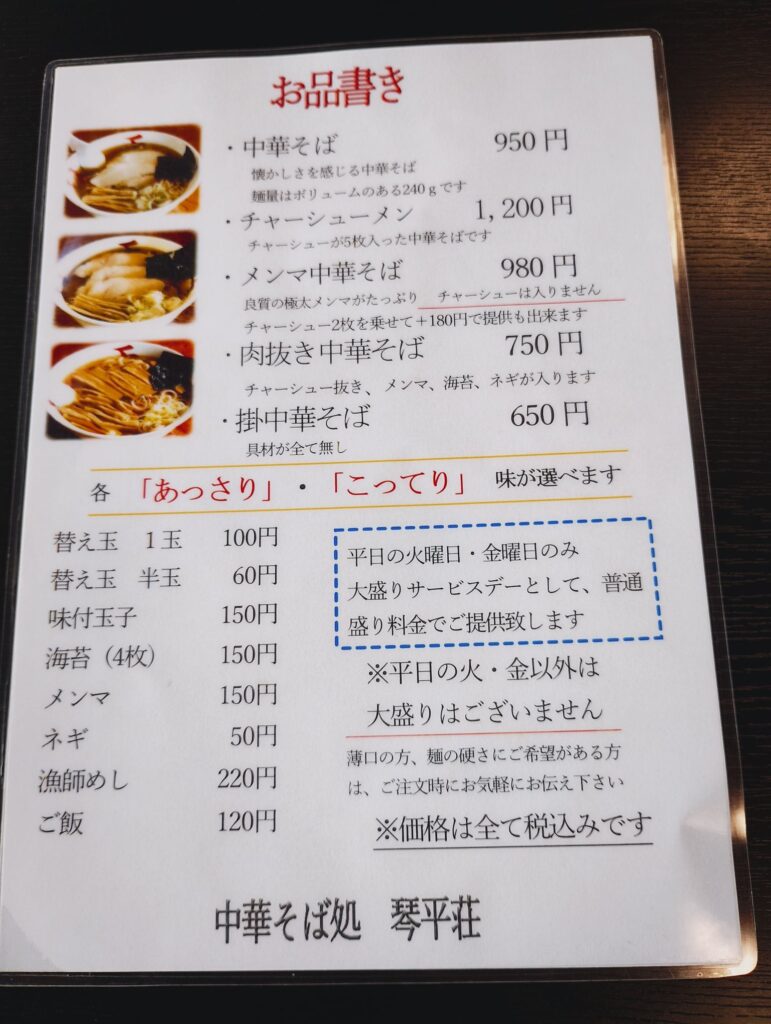 お品書き
・中華そば 950円
懐かしさを感じる中華そば
麺量はボリュームのある240gです
・チャーシューメン 1,200円
チャーシューが5枚入った中華そばです
・メンマ中華そば 980円
良質の極太メンマがたっぷり チャーシューは入りません
チャーシュー2枚を乗せて+180円で提供も出来ます
・肉抜き中華そば 750円
チャーシュー抜き、メンマ、海苔、ネギが入ります
・掛中華そば 650円
具材が全て無し
各 「あっさり」・「こってり」 味が選べます
替え玉 1玉 100円
替え玉 半玉 60円
味付玉子 150円
海苔（4枚） 150円
メンマ 150円
ネギ 50円
漁師めし 220円
ご飯 120円
平日の火曜日・金曜日のみ
大盛りサービスデーとして、普通
盛り料金でご提供致します
※平日の火・金以外は
大盛りはございません
薄口の方、麺の硬さにご希望がある方
は、ご注文時にお気軽にお伝え下さい
※価格は全て税込みです
中華そば処 琴平荘